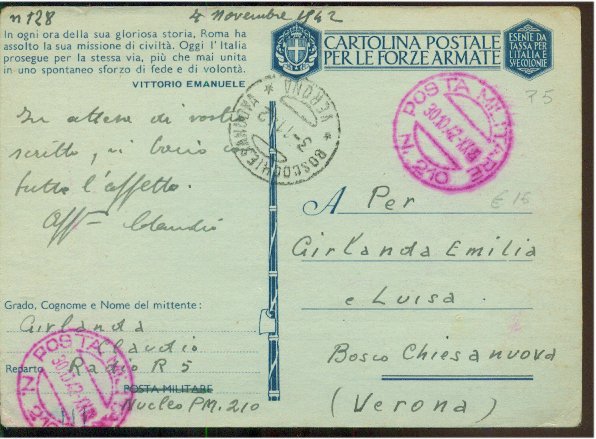 n 128
4 novembre 1942
In ogni ora della sua gloriosa storia, Roma ha
assolto la sua missione di civiltà. Oggi l'Italia
prosegue per la stessa via, più che mai unita
in uno spontaneo sforzo di fede e di volontà.
VITTORIO EMANUELE
CARTOLINA POSTALE
PER LE FORZE ARMATE
ESENTE DA
TASSA PER
L'ITALIA E
SVE COLONIE
In attesa di vostro
scritto, vi bacio con
tutto l'affetto.
Aff Claudio
BOSCOCHIESANUOVA * VERONA *
POSTA MILITARE N. 210
30.10.42.XXI
75
€ 15
A Per
Girlanda Emilia
e Luisa.
Bosco Chiesanuova
(Verona)
Grado, Cognome e Nome del mittente:
Girlanda
Claudio
Reparto Radio R 5
POSTA MILITARE
Nucleo P.M. 210
POSTA MILITARE N. 210
30.10.42.XXI